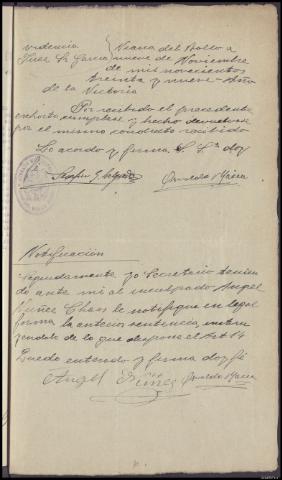 videncia Viana del Bollo a
Juez Sr Garcia nueve de Noviembre
de mil novecientos
treinta y nueve - Año
de la Victoria
Por recibido el precedente
exhorto cumplase y hecho devuelvase
por el mismo conducto recibido
Lo acordo y firma S. Sª doy

Notificación
Seguidamente yo Secretario tenien
do ante mi al inculpado Angel
Nuñez Chao le notifique en legal
forma la anterior sentencia enteran
dole de lo que dispone el Art 14
Quedo enterado y firma doy fé
Angel Nuñez